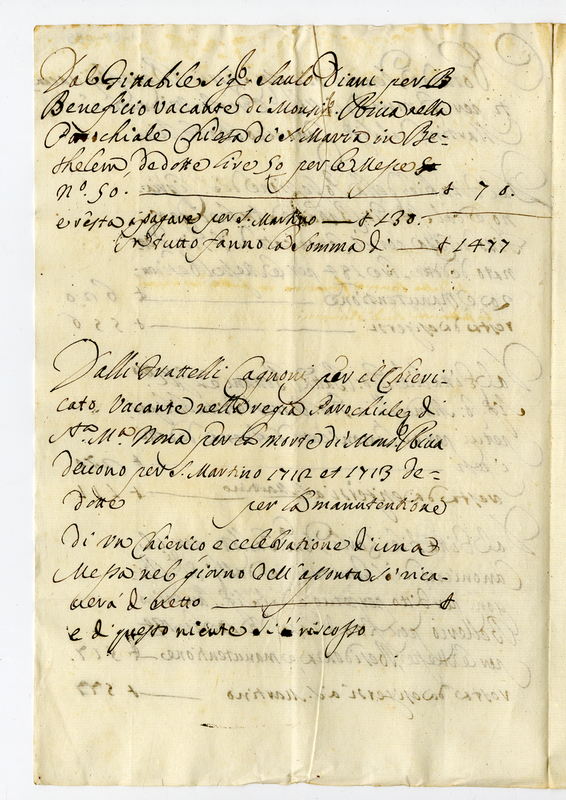 Dal Fittabile Sigr. Paulo Diani per il
Beneficio vacante di Monsigr. Obicia nella
Parochiale Chiesa di S. Maria in Be=
thelem, dedotte lire 50 per le Messe
no. 50. £ 78.
e resta a pagare per S. Martino £ 130.
In tutto fanno la somma di £ 1477
Dalli Frattelli Cagnoni per il Chieri-
cato vacante nella regia Parochiale di
Sta. Ma. Nova per la morte di Monsr. Obicia
devono per S. Martino 1712 et 1713 de=
dotte per la manutentione
di un Chierico e celebratione d'una
Messa nel giorno dell'assonta si rica-
verà di netto £
e di questo niente si è riscosso